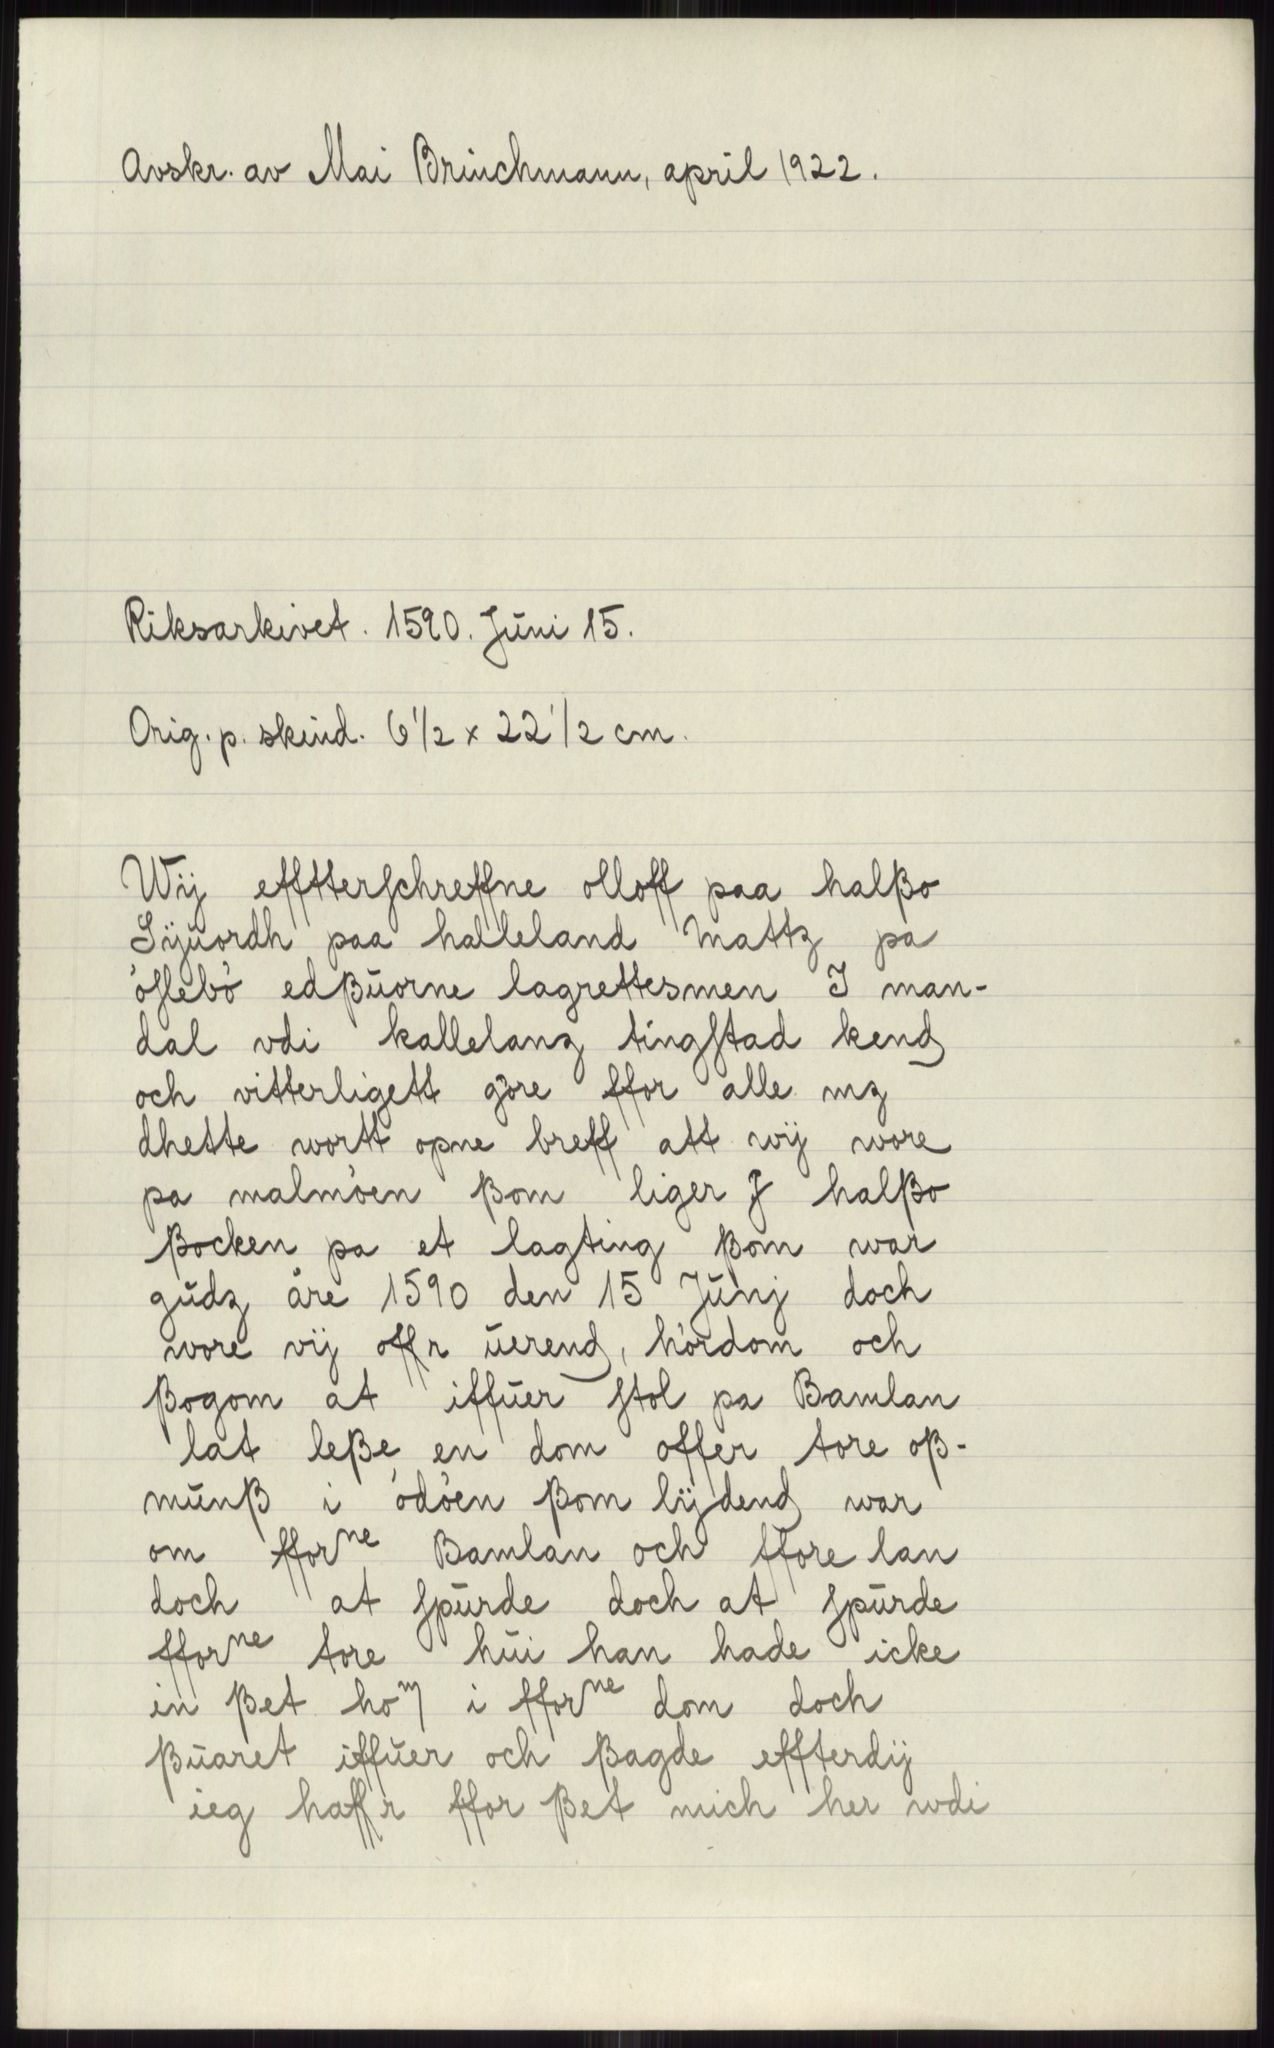 Avskr. av Mai Brinchmann, april 1922.
Riksarkivet. 1590. Juni 15.
Orig. p. skind. 6 1/2 x 22 1/2 cm.
Wij efftterschreffne olloff paa halßo
Sijŭordh paa halleland Mattz pa
öslebö edßŭorne lagrettesmen I man-
dal vdi kallelanz tingstad kend
och vitterligett göre ffor alle mz
dhette wortt opne breff att wij wore
pa malmöen ßom liger J halßo
ßocken pa et lagting ßom war
gŭdz åre 1590 den 15 Jŭnj doch
wore vij offr ŭerend, hördom och
ßogom at iffŭer stol pa Bamlan
lat leße en dom offer tore oß-
mŭnß i ödöen ßom lijdend war
om fforne Bamlan och ffore lan
doch at spŭrde doch at spŭrde
fforne tore hŭi han hade icke
in ßet hom i fforne dom doch
ßŭaret iffŭer och ßagde effterdij
ieg haffr ffor ßet mich her wdi